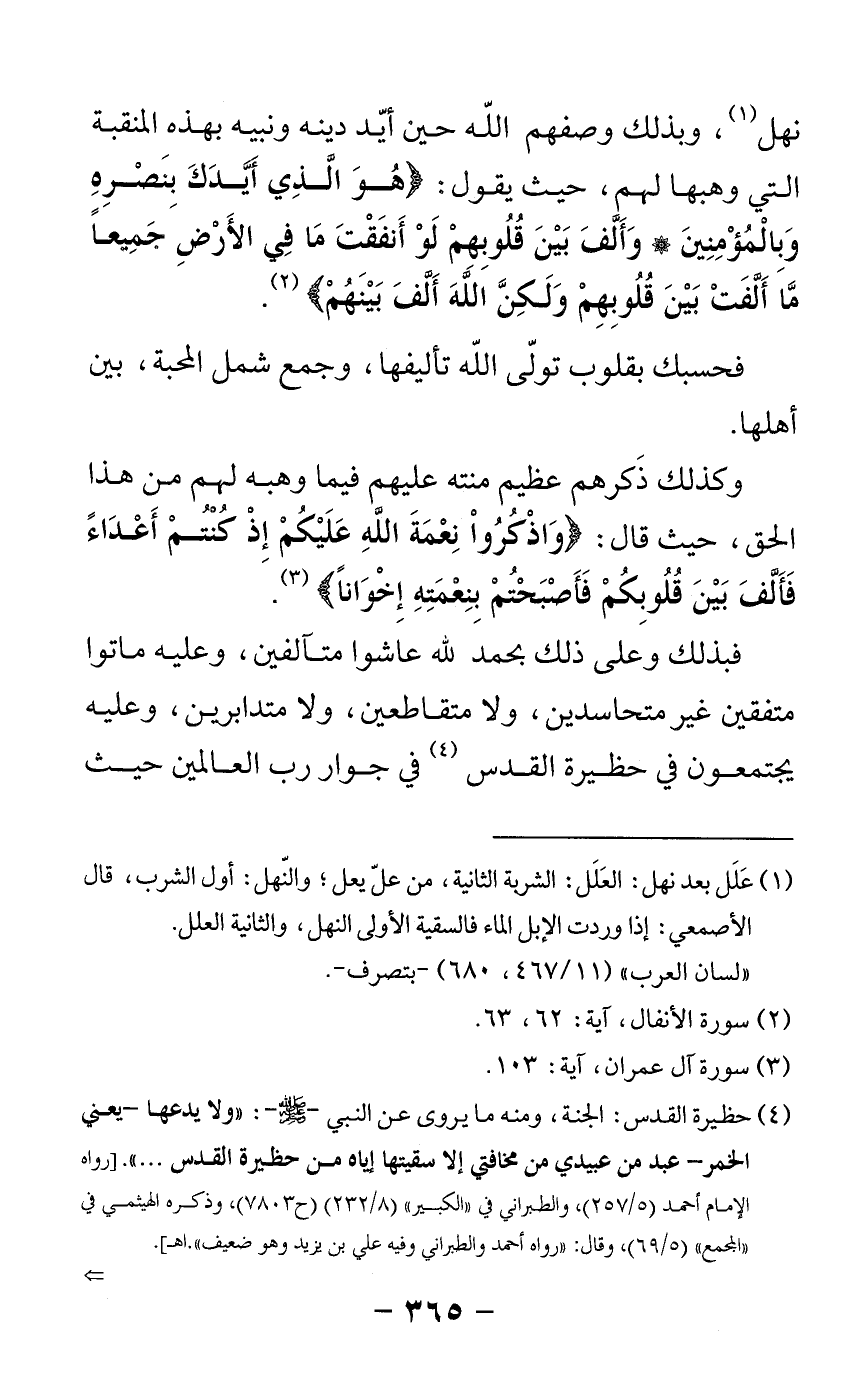 نهل(١)، وبذلك وصفهم اللّه حين أيّد دينه ونبيه بهذه المنقبة
التي وهبها لهم، حيث يقول: ﴿هُوَ الَّذِي أَيَّدَكَ بِنَصْرِهِ
وَبِالْمُؤْمِنِينَ * وَأَلَّفَ بَيْنَ قُلُوبِهِمْ لَوْ أَنفَقْتَ مَا فِي الأَرْضِ جَمِيعاً
مَّا أَلَّفَتْ بَيْنَ قُلُوبِهِمْ وَلَـكِنَّ اللَّهَ أَلَّفَ بَيْنَهُمْ﴾(٢).
فحسبك بقلوب تولّى اللّه تأليفها، وجمع شمل المحبة، بين
أهلها.
وكذلك ذَكرهم عظيم منته عليهم فيما وهبه لهم من هذا
الحق، حيث قال: ﴿وَاذْكُرُواْ نِعْمَةَ اللَّهِ عَلَيْكُمْ إِذْ كُنْتُمْ أَعْدَاءً
فَأَلَّفَ بَيْنَ قُلُوبِكُمْ فَأَصْبَحْتُمْ بِنِعْمَتِهِ إِخْوَاناً﴾(٣).
فبذلك وعلى ذلك بحمد لله عاشوا متآلفين، وعليه ماتوا
متفقين غير متحاسدين، ولا متقاطعين، ولا متدابرين، وعليه
يجتمعون في حظيرة القدس(٤) في جوار رب العالمين حيث
(١) عَلَل بعد نهل: العَلَل: الشربة الثانية، من علّ يعل؛ والنّهل: أول الشرب، قال
الأصمعي: إذا وردت الإبل الماء فالسقية الأولى النهل، والثانية العلل.
«لسان العرب» (٤٦٧/١١، ٦٨٠) -بتصرف-.
(٢) سورة الأنفال، آية: ٦٢، ٦٣.
(٣) سورة آل عمران، آية: ١٠٣.
(٤) حظيرة القدس: الجنة، ومنه ما يروى عن النبي -ﷺ-: «ولا يدعها -يعني
الخمر- عبد من عبيدي من مخافتي إلا سقيتها إياه من حظيرة القدس ...». [رواه
الإمام أحمد (٢٥٧/٥)، والطبراني في «الكبير» (٢٣٢/٨) (ح٧٨٠٣)، وذكره الهيثمي في
«المجمع» (٦٩/٥)، وقال: «رواه أحمد والطبراني وفيه علي بن يزيد وهو ضعيف».اهـ].
⇐
- ٣٦٥ -